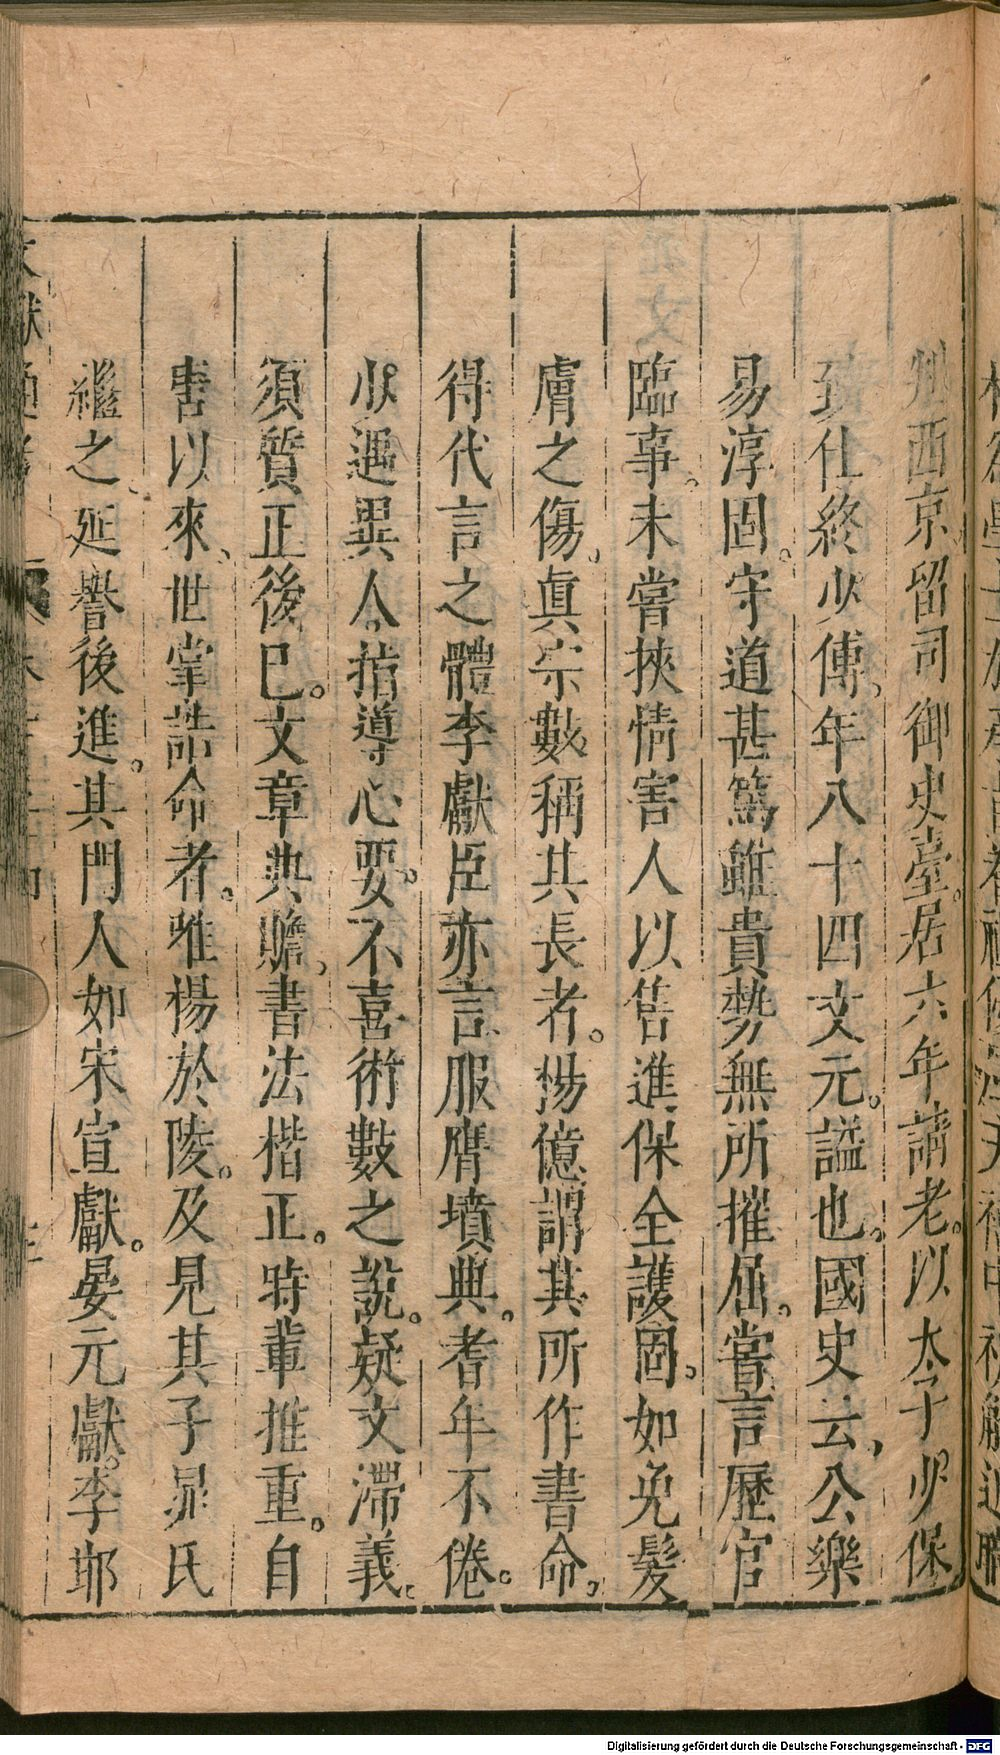 州西京留司御史臺。居六年請老。以太子少保
致仕終少傅。年八十四文元。謚也。國史云，公樂
易淳固。守道甚篤雖貴勢無所摧屈。嘗言歷官
臨事。未嘗挾情害人以售進保全護固。如免髮
膚之傷。眞宗數稱其長者。楊億謂其所作書命。
得代言之體李獻臣亦言服膺墳典。耆年不倦。
少遇異人。指導心要。不喜術數之說。疑文滯義。
須質正後已。文章典贍。書法楷正。時輩推重。自
唐以來、世掌誥命者。唯楊於陵。及見其子晁氏
繼之、延譽後進。其門人如宋宣獻。晏元獻。李邯
文獻通考
Digitalisierung gefördert durch die Deutsche Forschungsgemeinschaft - DFG